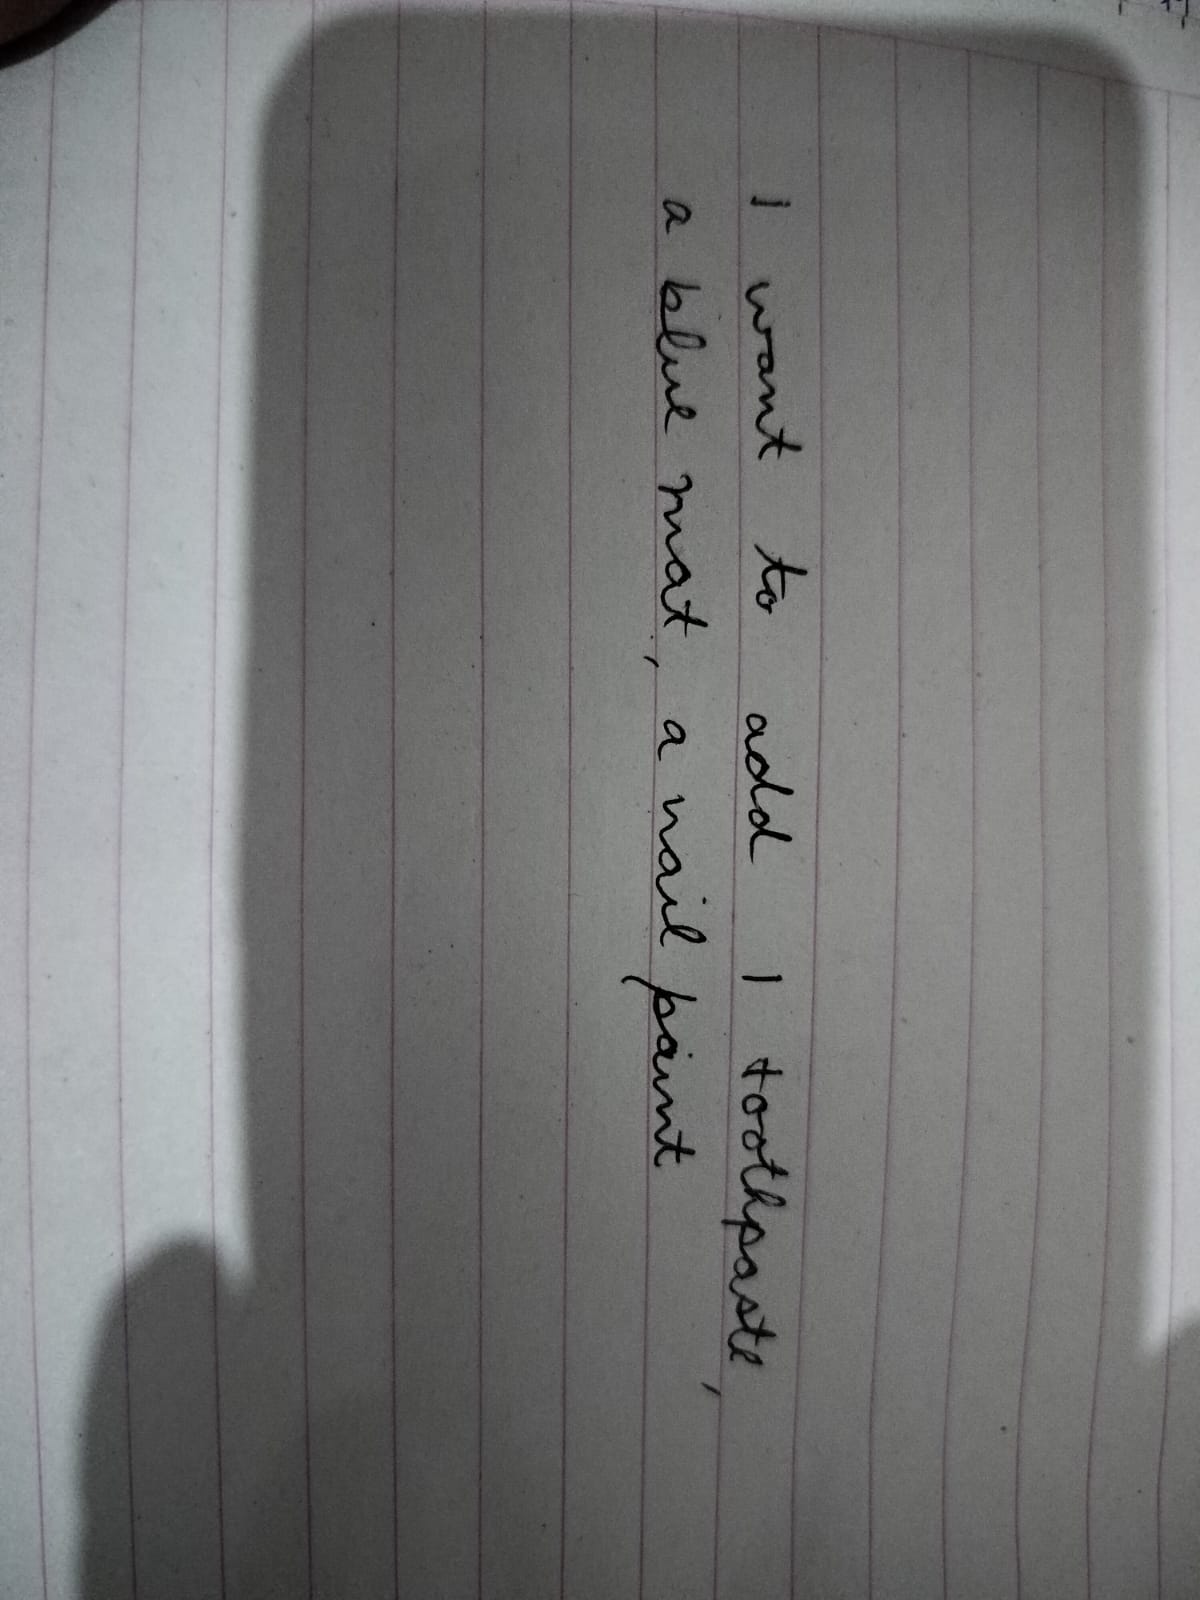 I want to add 1 toothpaste,
a blue mat, a nail paint